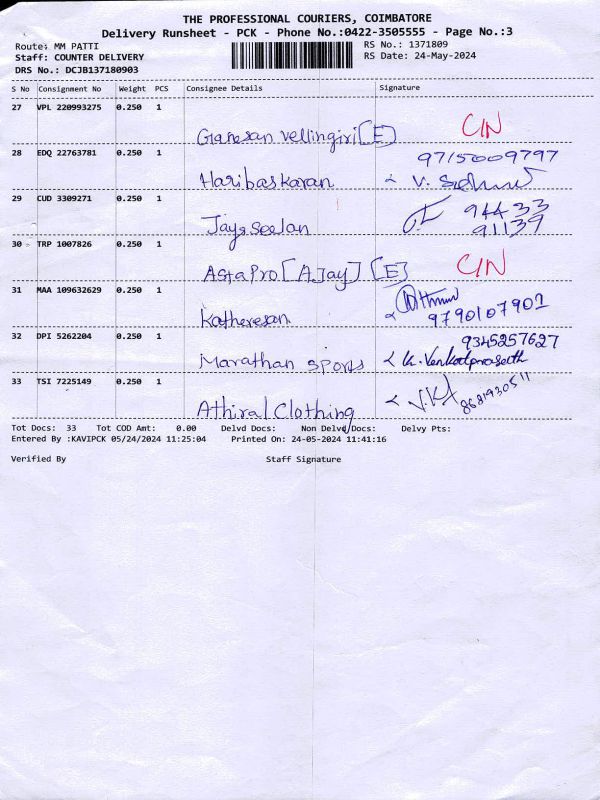 THE PROFESSIONAL COURIERS, COIMBATORE
Delivery Runsheet - PCK - Phone No.:0422-3505555 - Page No.:3
Route: MM PATTI RS No.: 1371809
Staff: COUNTER DELIVERY RS Date: 24-May-2024
DRS No.: DCJB137180903
S No Consignment No Weight PCS Consignee Details Signature
27 VPL 220993275 0.250 1
Ganesan Vellingiri [E] C/N
28 EDQ 22763781 0.250 1 9715009797
Haribaskaran V.
29 CUD 3309271 0.250 1 94433
Jaya Seelan 91139
30 TRP 1007826 0.250 1
Asta Pro [Ajay] [E] C/N
31 MAA 109632629 0.250 1
Katheresan 9790107902
32 DPI 5262204 0.250 1 9345257627
Marathan Sports K. Venkatprasath
33 TSI 7225149 0.250 1
Athiral Clothing 8681930511
Tot Docs: 33 Tot COD Amt: 0.00 Delvd Docs: Non Delvd/Docs: Delvy Pts:
Entered By :KAVIPCK 05/24/2024 11:25:04 Printed On: 24-05-2024 11:41:16
Verified By Staff Signature